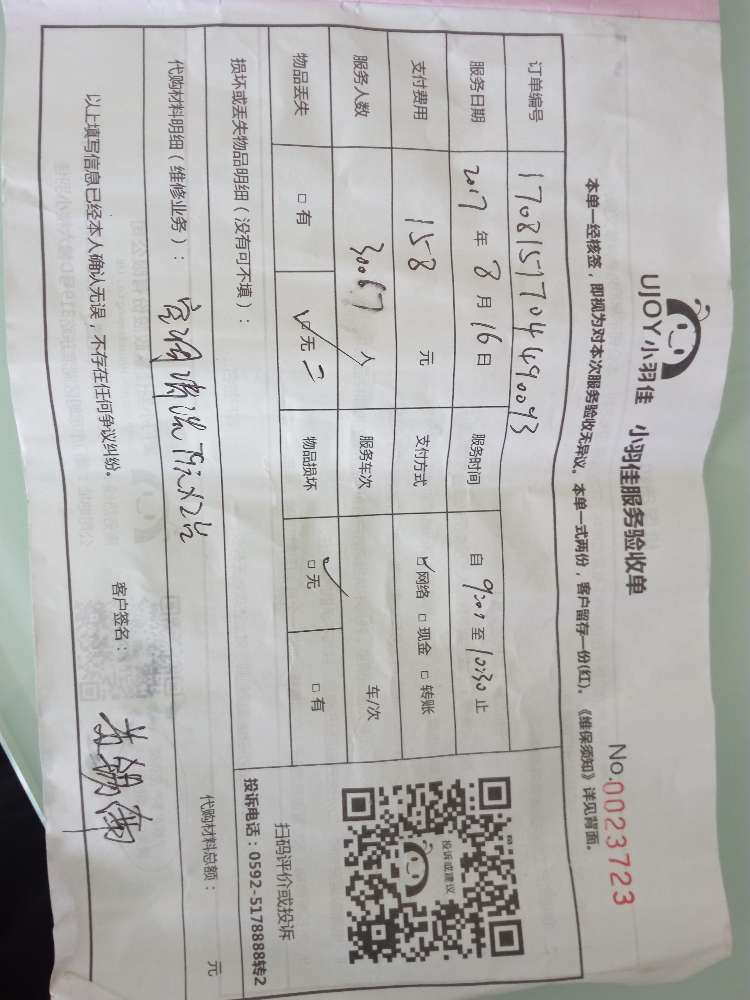 UJOY小羽佳 小羽佳服务验收单
No.0023723
本单一经核签，即视为对本次服务验收无异议。本单一式两份，客户留存一份(红)。《维保须知》详见背面。
订单编号 1708151704490093
服务日期 2017 年 8 月 16 日 服务时间 自 9:00 至 10:30 止
支付费用 158 元 支付方式 ☑网络 □现金 □转账
服务人数 30067 人 服务车次 车/次
物品丢失 □有 ☑无 物品损坏 ☑无 □有
损坏或丢失物品明细（没有可不填）：
投诉或建议
扫码评价或投诉
投诉电话：0592-5178888转2
代购材料明细（维修业务）： 空调清洗 79元×2台
代购材料总额： 元
以上填写信息已经本人确认无误，不存在任何争议纠纷。
客户签名：